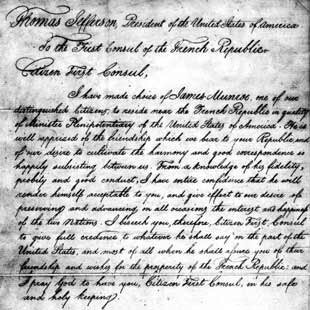 Thomas Jefferson, President of the United States of America
To the First Consul of the French Republic.
Citizen First Consul,
I have made choice of James Munroe, one of our
distinguished Citizens, to reside near the French Republic in quality
of Minister Plenipotentiary of the United States of America. He is
well apprised of the friendship which we bear to your Republic, and
of our desire to cultivate the harmony and good correspondence so
happily subsisting between us. From a knowledge of his fidelity,
probity and good conduct, I have entire confidence that he will
render himself acceptable to you, and give effect to our desire of
preserving and advancing, on all occasions the interest and happiness
of the two Nations. I beseech you, therefore, Citizen First Consul
to give full credence to whatever he shall say on the part of the
United States, and most of all when he shall assure you of their
friendship and wishes for the prosperity of the French Republic: and
I pray God to have you, Citizen First Consul, in his safe
and holy keeping.